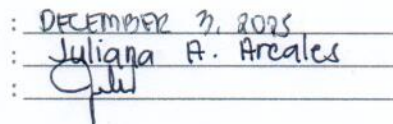 : DECEMBER 3, 2025
: Juliana A. Arcales
: